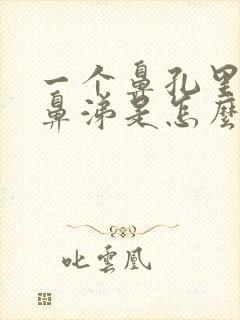 一个鼻孔里
鼻涕是怎麼
叱雲凰